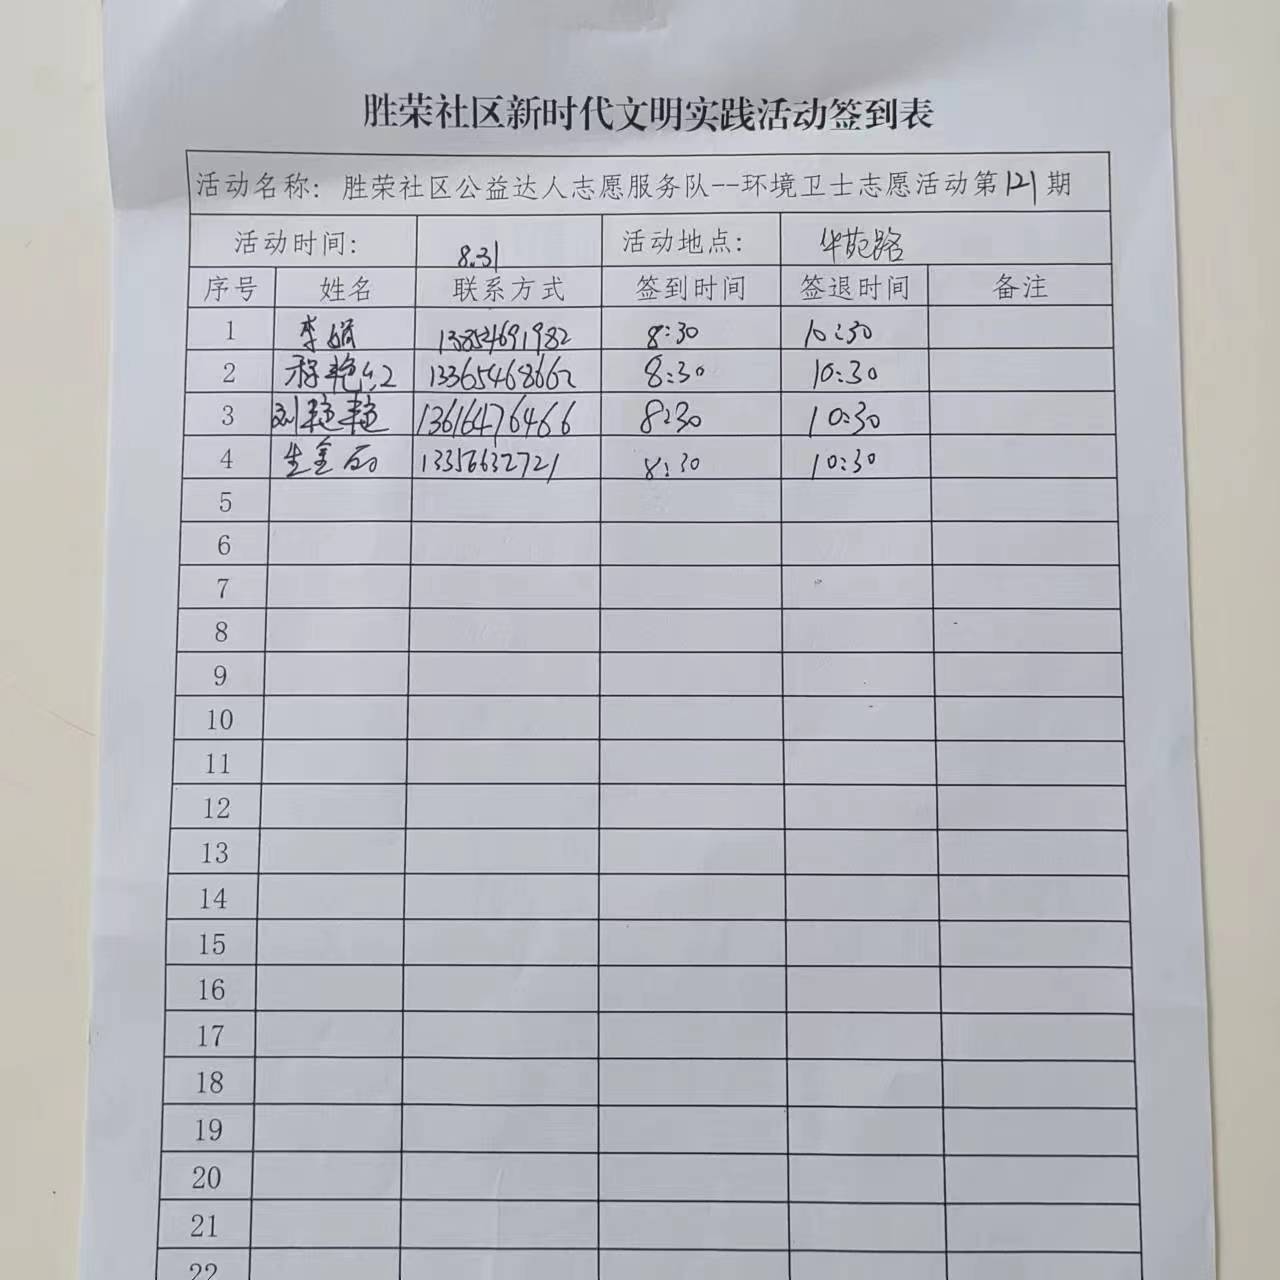 胜荣社区新时代文明实践活动签到表
活动名称: 胜荣社区公益达人志愿服务队--环境卫士志愿活动第121期
活动时间: 8.31 活动地点: 华苑路
序号 姓名 联系方式 签到时间 签退时间 备注
1 李娟 13854691982 8:30 10:30
2 程艳红 13365468662 8:30 10:30
3 刘艳艳 13616476466 8:30 10:30
4 生金 13356632721 8:30 10:30
5
6
7
8
9
10
11
12
13
14
15
16
17
18
19
20
21
22